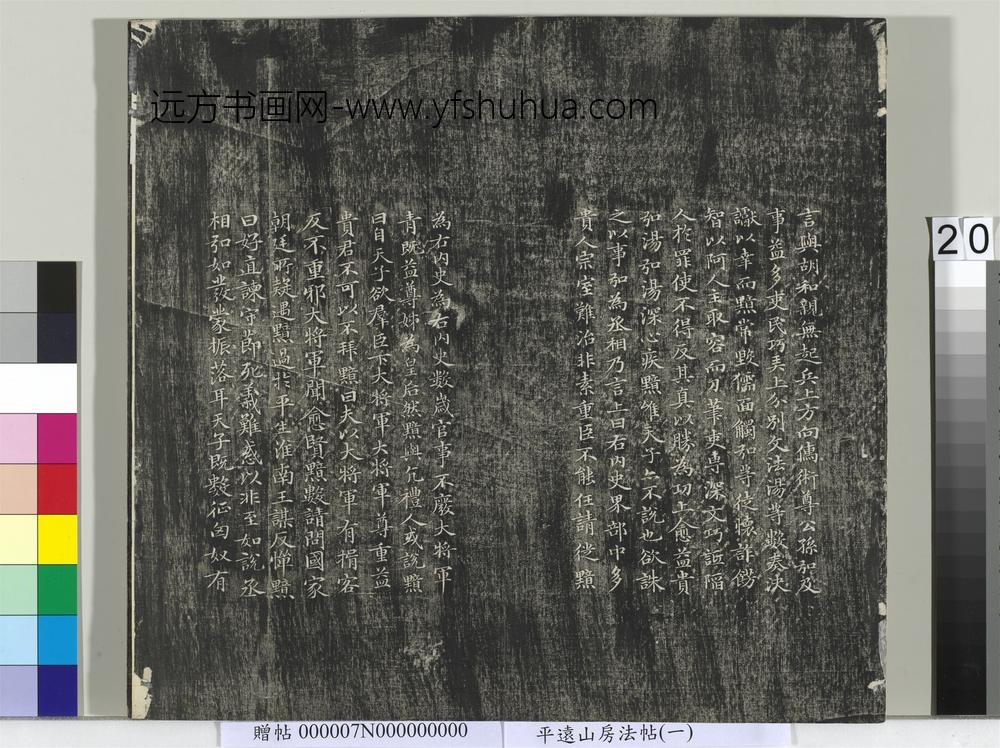 远方书画网-www.yfshuhua.com
言與胡和親無起兵上方向儒術尊公孫弘及
事益多吏民巧美上分別文法湯等數奏決
讞以幸而黯常毀儒面觸弘等徒懷詐飾
智以阿人主取容而刀筆吏專深文巧詆陷
人於罪使不得反其真以勝為功上愈益貴
弘湯弘湯深心疾黯雖天子亦不說也欲誅
之以事弘為丞相乃言上曰右內史界部中多
貴人宗室難治非素重臣不能任請徙黯
為右內史為右內史數歲官事不廢大將軍
青既益尊姊為皇后然黯與亢禮人或說黯
曰自天子欲羣臣下大將軍大將軍尊重益
貴君不可以不拜黯曰夫以大將軍有揖客
反不重邪大將軍聞愈賢黯數請問國家
朝廷所疑遇黯過於平生淮南王謀反憚黯
曰好直諫守節死義難惑以非至如說丞
相弘如發蒙振落耳天子既數征匈奴有
20
贈帖 000007N000000000
平遠山房法帖(一)